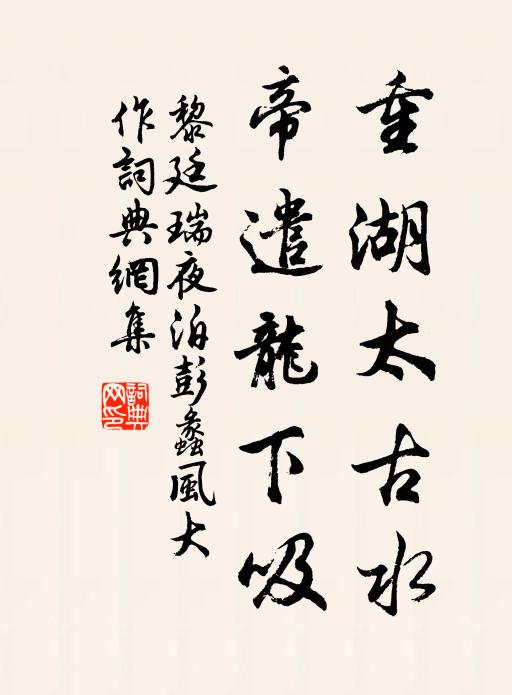 重湖太古水
帝遣龍下吸
黎廷瑞夜泊彭蠡風大
作詞典網集
詞典
网印